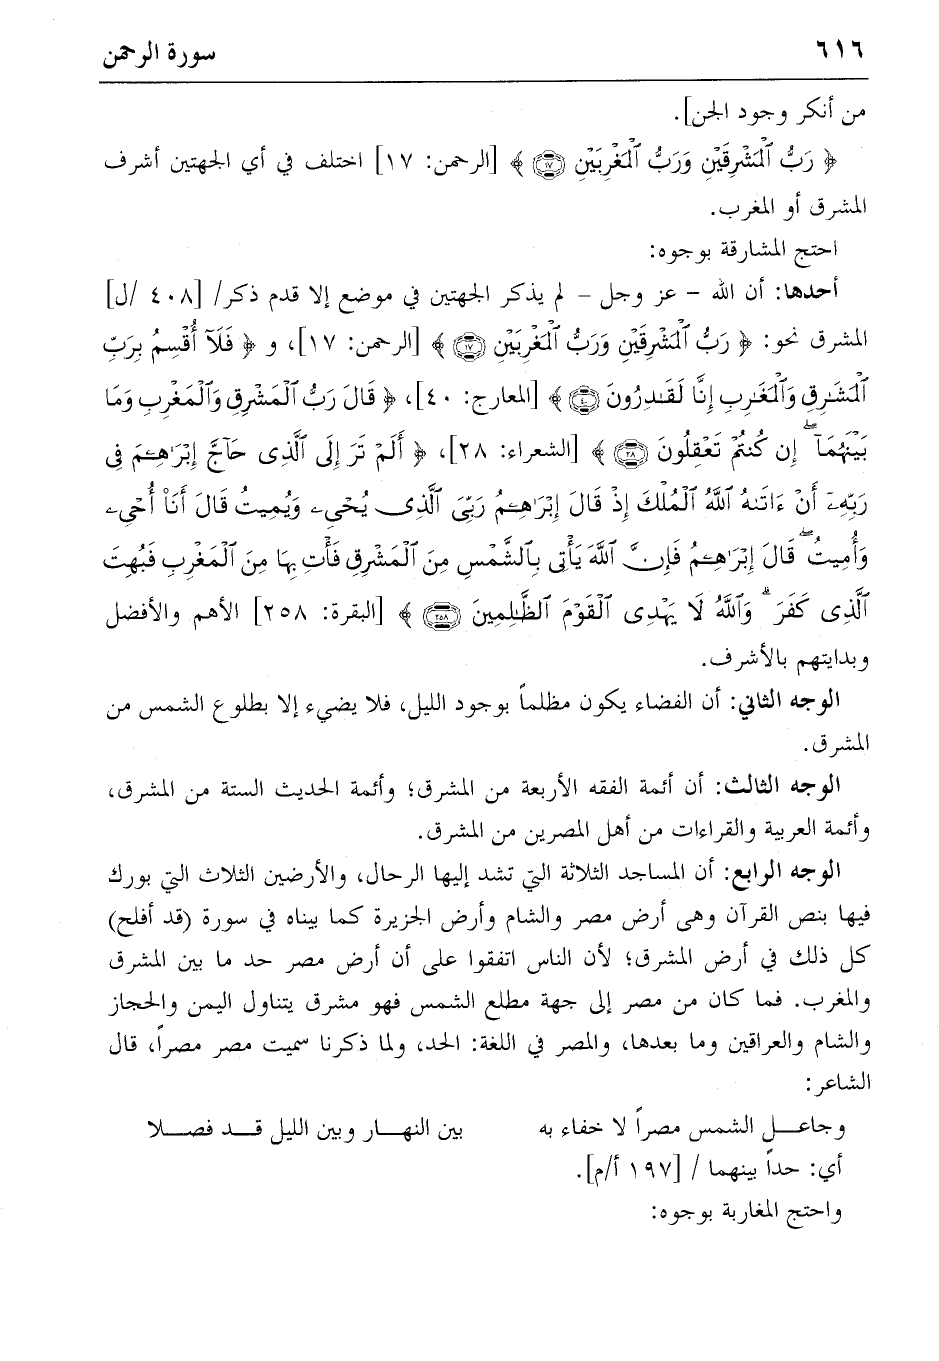 ٦١٦ سورة الرحمن
من أنكر وجود الجن].
﴿ رَبُّ ٱلْمَشْرِقَيْنِ وَرَبُّ ٱلْمَغْرِبَيْنِ ١٧ ﴾ [الرحمن: ١٧] اختلف في أي الجهتين أشرف
المشرق أو المغرب.
احتج المشارقة بوجوه:
أحدها: أن الله – عز وجل – لم يذكر الجهتين في موضع إلا قدم ذكر/ [٤٠٨ /ل]
المشرق نحو: ﴿ رَبُّ ٱلْمَشْرِقَيْنِ وَرَبُّ ٱلْمَغْرِبَيْنِ ١٧ ﴾ [الرحمن: ١٧]، و ﴿ فَلَآ أُقْسِمُ بِرَبِّ
ٱلْمَشَٰرِقِ وَٱلْمَغَٰرِبِ إِنَّا لَقَٰدِرُونَ ٤٠ ﴾ [المعارج: ٤٠]، ﴿ قَالَ رَبُّ ٱلْمَشْرِقِ وَٱلْمَغْرِبِ وَمَا
بَيْنَهُمَآ ۖ إِن كُنتُمْ تَعْقِلُونَ ٢٨ ﴾ [الشعراء: ٢٨]، ﴿ أَلَمْ تَرَ إِلَى ٱلَّذِى حَآجَّ إِبْرَٰهِـۧمَ فِى
رَبِّهِۦٓ أَنْ ءَاتَىٰهُ ٱللَّهُ ٱلْمُلْكَ إِذْ قَالَ إِبْرَٰهِـۧمُ رَبِّىَ ٱلَّذِى يُحْىِۦ وَيُمِيتُ قَالَ أَنَا۠ أُحْىِۦ
وَأُمِيتُ ۖ قَالَ إِبْرَٰهِـۧمُ فَإِنَّ ٱللَّهَ يَأْتِى بِٱلشَّمْسِ مِنَ ٱلْمَشْرِقِ فَأْتِ بِهَا مِنَ ٱلْمَغْرِبِ فَبُهِتَ
ٱلَّذِى كَفَرَ ۗ وَٱللَّهُ لَا يَهْدِى ٱلْقَوْمَ ٱلظَّٰلِمِينَ ٢٥٨ ﴾ [البقرة: ٢٥٨] الأهم والأفضل
وبدايتهم بالأشرف.
الوجه الثاني: أن الفضاء يكون مظلماً بوجود الليل، فلا يضيء إلا بطلوع الشمس من
المشرق.
الوجه الثالث: أن أئمة الفقه الأربعة من المشرق؛ وأئمة الحديث الستة من المشرق،
وأئمة العربية والقراءات من أهل المصرين من المشرق.
الوجه الرابع: أن المساجد الثلاثة التي تشد إليها الرحال، والأرضين الثلاث التي بورك
فيها بنص القرآن وهى أرض مصر والشام وأرض الجزيرة كما بيناه في سورة (قد أفلح)
كل ذلك في أرض المشرق؛ لأن الناس اتفقوا على أن أرض مصر حد ما بين المشرق
والمغرب. فما كان من مصر إلى جهة مطلع الشمس فهو مشرق يتناول اليمن والحجاز
والشام والعراقين وما بعدها، والمصر في اللغة: الحد، ولما ذكرنا سميت مصر مصراً، قال
الشاعر:
وجاعـــل الشمس مصراً لا خفاء به بين النهـــار وبين الليل قـــد فصـــلا
أي: حداً بينهما / [١٩٧ أ/م].
واحتج المغاربة بوجوه: